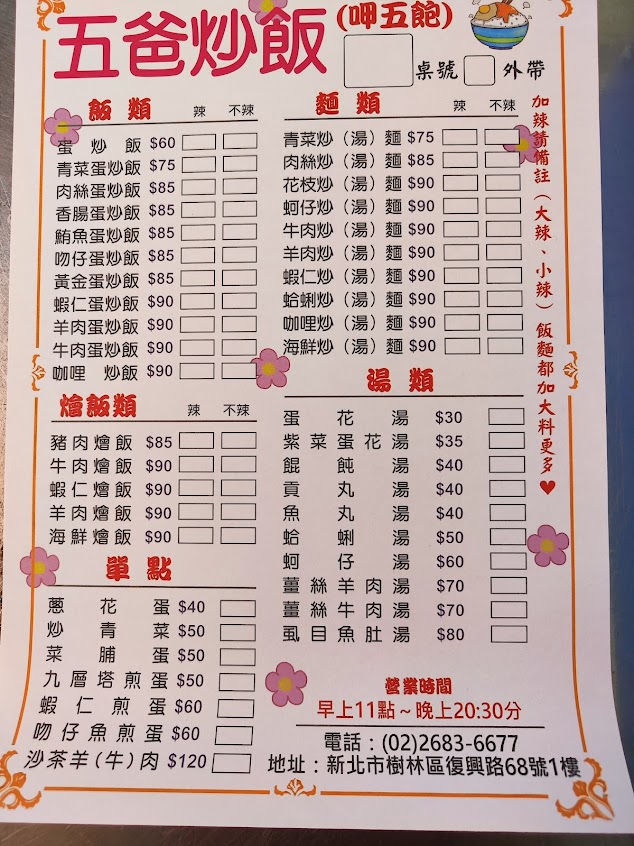 五爸炒飯
(呷五館)
桌號 外帶
飯類 辣 不辣
蛋炒飯 $60
青菜蛋炒飯 $75
肉絲蛋炒飯 $85
香腸蛋炒飯 $85
鮪魚蛋炒飯 $85
吻仔蛋炒飯 $85
黃金蛋炒飯 $85
蝦仁蛋炒飯 $90
羊肉蛋炒飯 $90
牛肉蛋炒飯 $90
咖哩 炒飯 $90
燴飯類 辣 不辣
豬肉燴飯 $85
牛肉燴飯 $90
蝦仁燴飯 $90
羊肉燴飯 $90
海鮮燴飯 $90
單點
蔥花蛋 $40
炒青菜 $50
菜脯蛋 $50
九層塔煎蛋 $50
蝦仁煎蛋 $60
吻仔魚煎蛋 $60
沙茶羊(牛)肉 $120
麵類 辣 不辣
青菜炒（湯）麵 $75
肉絲炒（湯）麵 $85
花枝炒（湯）麵 $90
蚵仔炒（湯）麵 $90
牛肉炒（湯）麵 $90
羊肉炒（湯）麵 $90
蝦仁炒（湯）麵 $90
蛤蜊炒（湯）麵 $90
咖哩炒（湯）麵 $90
海鮮炒（湯）麵 $90
湯類
蛋花湯 $30
紫菜蛋花湯 $35
餛飩湯 $40
貢丸湯 $40
魚丸湯 $40
蛤蜊湯 $50
蚵仔湯 $60
薑絲羊肉湯 $70
薑絲牛肉湯 $70
虱目魚肚湯 $80
加辣請備註（大辣、小辣）飯麵都加大料更多♥
營業時間
早上11點～晚上20:30分
電話：(02)2683-6677
地址：新北市樹林區復興路68號1樓